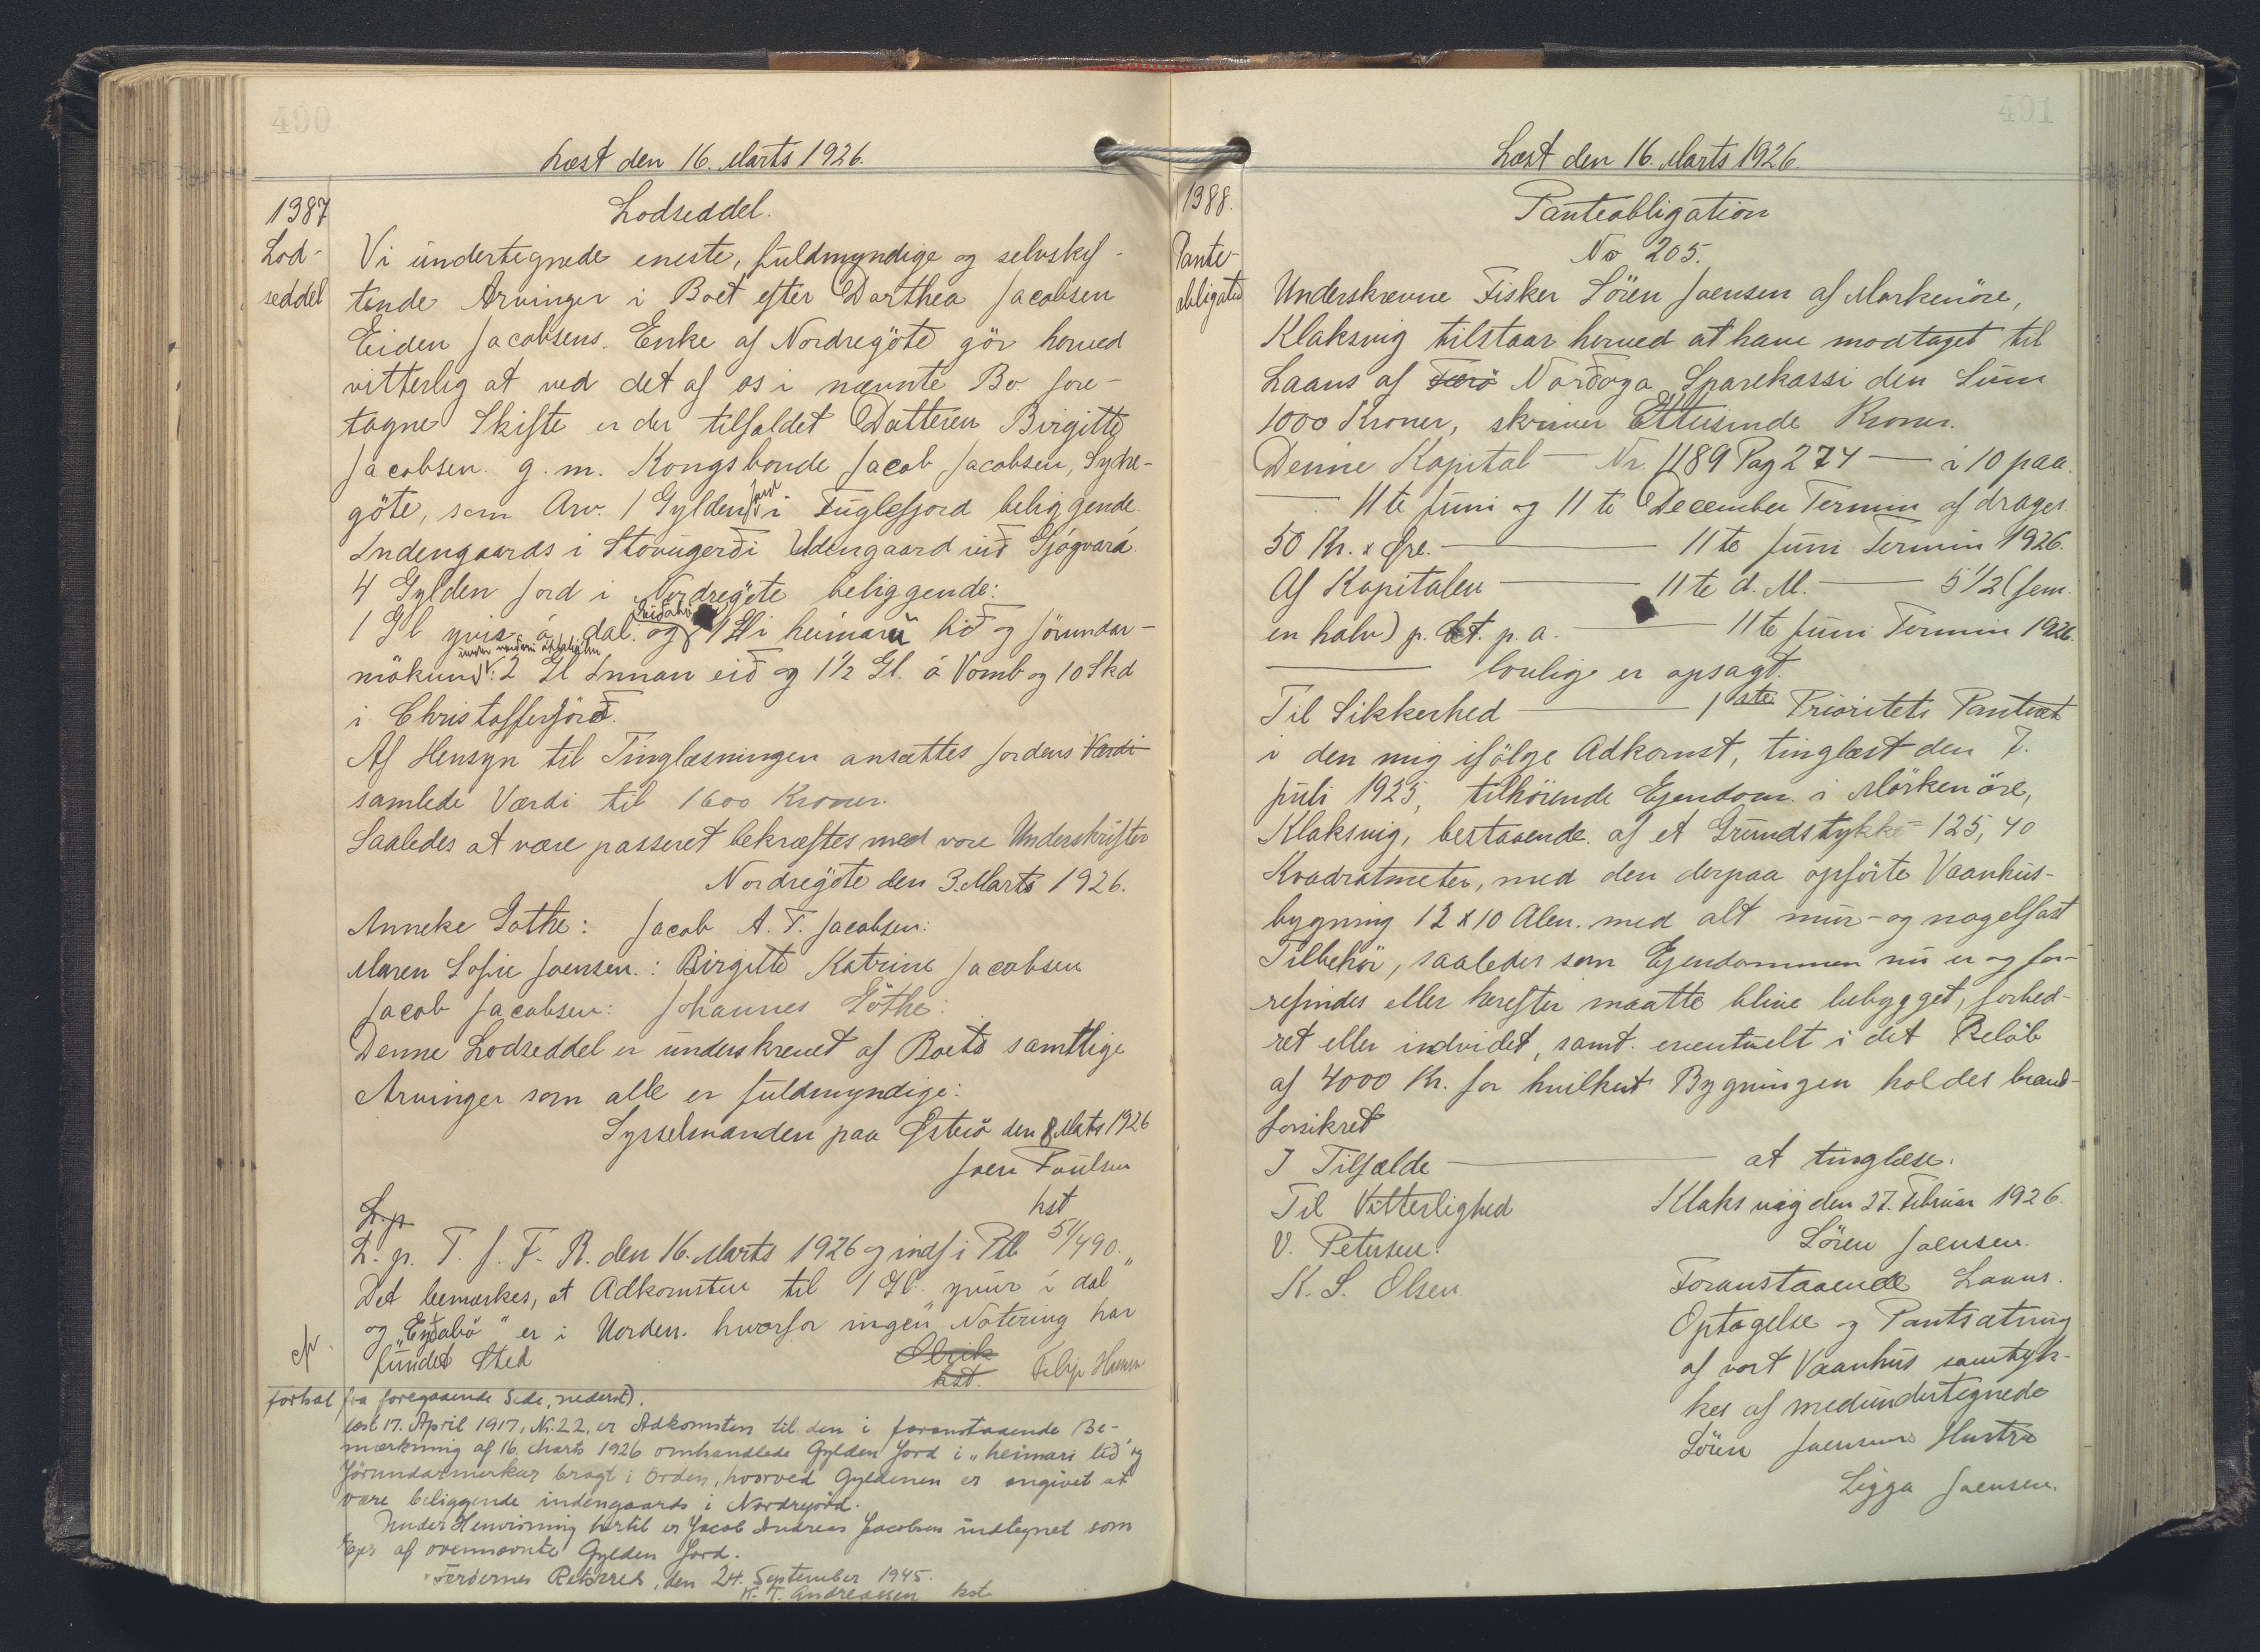 490
Læst den 16. Marts 1926.
1387
Lod-
seddel
Lodseddel.
Vi undertegnede eneste, fuldmyndige og selvskif-
tende Arvinger i Boet efter Darthea Jacobsen
Eiden Jacobsens Enke af Nordregöte gör herved
vitterlig at ved det af os i nævnte Bo fore-
tagne Skifte er der tilfaldet Datteren Birgitte
Jacobsen g. m. Kongsbonde Jacob Jacobsen, Sydre-
göte, som Arv. 1 Gylden Jord i Fuglefjord beliggende
Indengaards i Stovugerði Udengaard við Gjógvará
4 Gylden Jord i Nordregöte beliggende:
1 Gl yvir á dal og 1 Gl i heimaru lið og Jórundar-
mökum: 2 Gl Innan eið og 1½ Gl. á Vomb og 10 Skd
i Christofferjörð.
Af Hensyn til Tinglæsningen ansættes Jordens Værdi
samlede Værdi til 1600 Kroner.
Saaledes at være passeret bekræftes med vore Underskrifter
Nordregöte den 3. Marts 1926.
Anneke Gothe: Jacob A. F. Jacobsen:
Maren Sofie Joensen.: Birgitte Katrine Jacobsen
Jacob Jacobsen: Johannes Göthe:
Denne Lodseddel er underskrevet af Boets samtlige
Arvinger som alle er fuldmyndige:
Sysselmanden paa Østerö den 8 Mats 1926
Joen Poulsen
kst
L. p
L. p. T. f. F. R. den 16. Marts 1926 og indf i Ptb 51/490.
Det bemærkes, at Adkomsten til 1 Gl. "yvur í dal"
og "Eyðabö" er i Uorden. hvorfor ingen Notering har
fundet Sted
Olrik
kst.
Filip Hansen
fortsat fra foregaaende Side, nederst).
læst 17. April 1917, Nr. 22, er Adkomsten til den i foranstaaende Be-
mærkning af 16. Marts 1926 omhandlede Gylden Jord i "heimari lið" og
Jórundarmerkur bragt i Orden, hvorved Gyldenen er angivet at
være beliggende indengaards i Nordregöta.
Under Henvisning hertil er Jacob Andreas Jacobsen indtegnet som
Ejer af ovennævnte Gylden Jord.
Færøernes Retskreds, den 24. September 1945.
K. T. Andreassen kst
401
Læst den 16. Marts 1926.
1388.
Pante-
obligation
Panteobligation
No 205.
Underskrevne Fisker Sören Joensen af Mørkenöre,
Klaksvig tilstaar herved at have modtaget til
Laans af Færö Norðoya Sparekassi den Sum
1000 Kroner, skriver Ettusinde Kroner.
Denne Kapital — Nr. 1189 Pag 274 — i 10 paa
— 11te Juni og 11te December Termin afdrages
50 Kr. x Øre. — 11te Juni Termin 1926.
Af Kapitalen — 11te d. M. — 5 1/2 (fem
en halv) p. Ct. p. a. — 11te Juni Termin 1926.
— lovlig er opsagt.
Til Sikkerhed — 1ste Prioritets Panteret
i den mig ifölge Adkomst, tinglæst den 7.
Juli 1925, tilhörende Ejendom i Mörkenöre,
Klaksvig, bestaaende af et Grundstykke 125,40
Kvadratmeter, med den derpaa opförte Vaanhus-
bygning 12 x 10 Alen. med alt mur- og nagelfast
Tilbehör, saaledes som Ejendommen nu er og for-
refindes eller herefter maatte blive bebygget, forbed-
ret eller indvidet, samt. eventuelt i det Belöb
af 4000 Kr. for hvilket Bygningen holdes brand-
forsikret
I Tilfælde — at tinglæse.
Til Vitterlighed Klaksvig den 27. Februar 1926.
V. Petersen. Sören Joensen.
K. S. Olsen. Foranstaaende Laans.
Optagelse og Pantsætning
af vort Vaanhus samtyk-
kes af medundertegnede
Sören Joensens Hustru
Sigga Joensen.